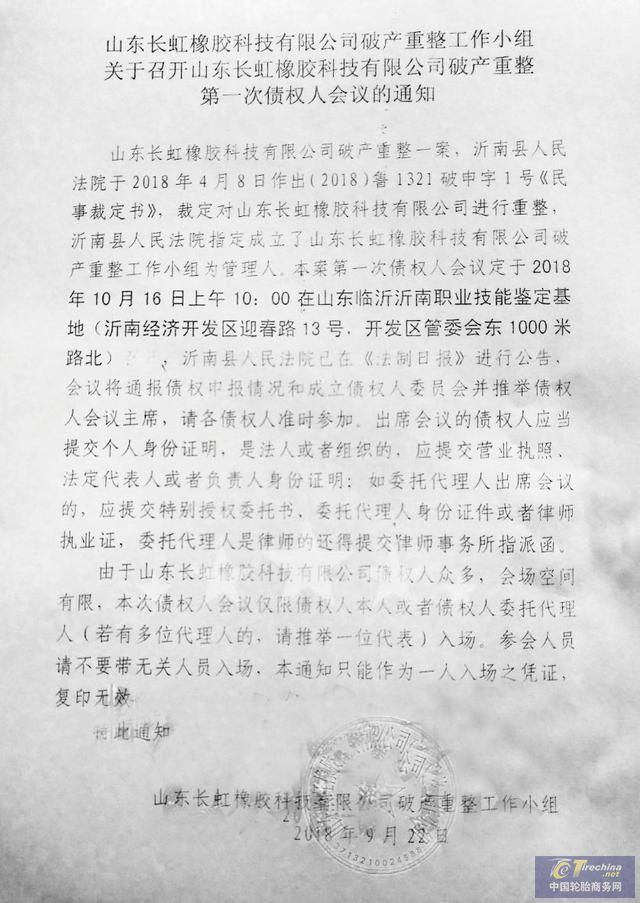 山东长虹橡胶科技有限公司破产重整工作小组
关于召开山东长虹橡胶科技有限公司破产重整
第一次债权人会议的通知
山东长虹橡胶科技有限公司破产重整一案，沂南县人民
法院于2018年4月8日作出(2018)鲁1321破申字1号《民
事裁定书》，裁定对山东长虹橡胶科技有限公司进行重整，
沂南县人民法院指定成立了山东长虹橡胶科技有限公司破
产重整工作小组为管理人。本案第一次债权人会议定于2018
年10月16日上午10：00在山东临沂沂南职业技能鉴定基
地（沂南经济开发区迎春路13号，开发区管委会东1000米
路北），沂南县人民法院已在《法制日报》进行公告，
会议将通报债权申报情况和成立债权人委员会并推举债权
人会议主席，请各债权人准时参加。出席会议的债权人应当
提交个人身份证明，是法人或者组织的，应提交营业执照、
法定代表人或者负责人身份证明；如委托代理人出席会议
的，应提交特别授权委托书、委托代理人身份证件或者律师
执业证，委托代理人是律师的还得提交律师事务所指派函。
由于山东长虹橡胶科技有限公司债权人众多，会场空间
有限，本次债权人会议仅限债权人本人或者债权人委托代理
人（若有多位代理人的，请推举一位代表）入场。参会人员
请不要带无关人员入场，本通知只能作为一人入场之凭证，
复印无效
特此通知
山东长虹橡胶科技有限公司破产重整工作小组
2018年9月22日
3713210024588
Tirechina.net
中国轮胎商务网